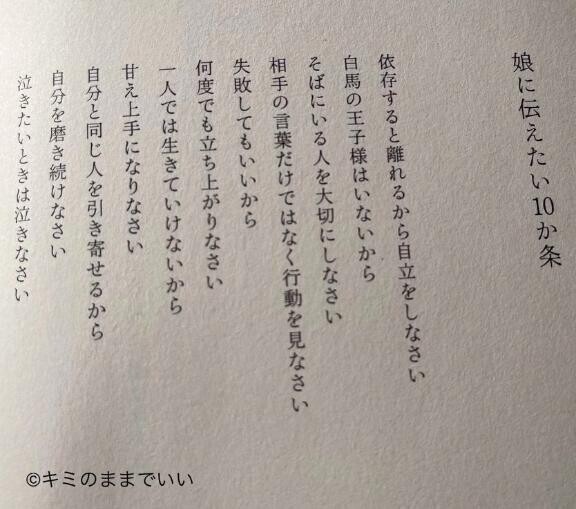 娘に伝えたい10か条
依存すると離れるから自立をしなさい
白馬の王子様はいないから
そばにいる人を大切にしなさい
相手の言葉だけではなく行動を見なさい
失敗してもいいから
何度でも立ち上がりなさい
一人では生きていけないから
甘え上手になりなさい
自分と同じ人を引き寄せるから
自分を磨き続けなさい
泣きたいときは泣きなさい
©キミのままでいい